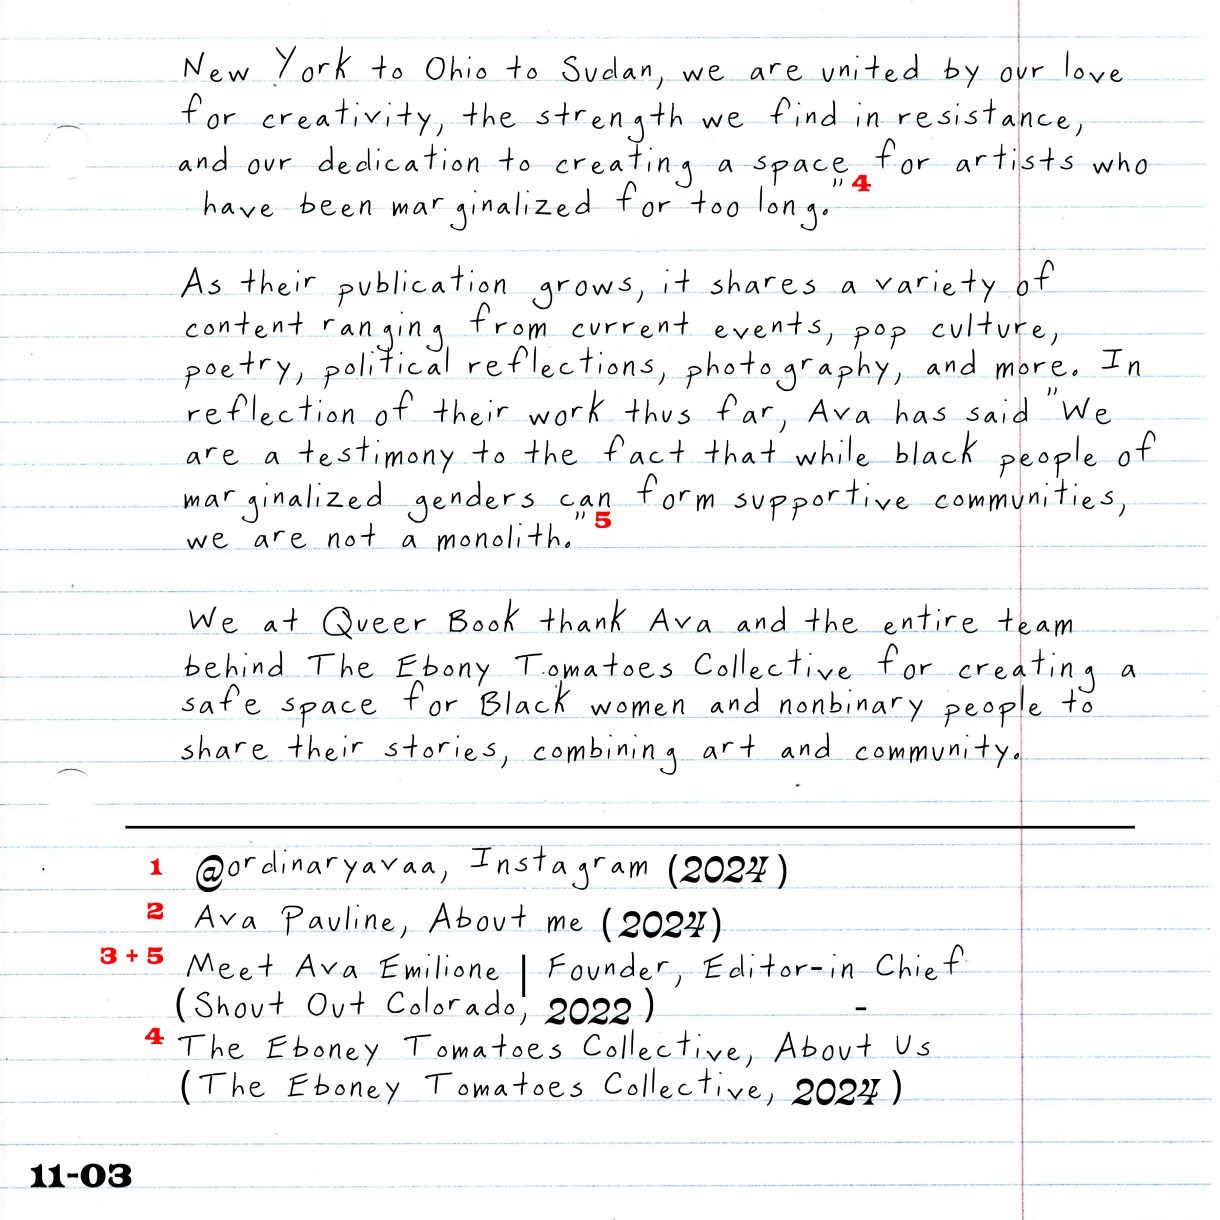 New York to Ohio to Sudan, we are united by our love
for creativity, the strength we find in resistance,
and our dedication to creating a space for artists who
have been marginalized for too long." 4
As their publication grows, it shares a variety of
content ranging from current events, pop culture,
poetry, political reflections, photography, and more. In
reflection of their work thus far, Ava has said "We
are a testimony to the fact that while black people of
marginalized genders can form supportive communities,
we are not a monolith." 5
We at Queer Book thank Ava and the entire team
behind The Ebony Tomatoes Collective for creating a
safe space for Black women and nonbinary people to
share their stories, combining art and community.
1 @ordinaryavaa, Instagram (2024)
2 Ava Pauline, About me (2024)
3 + 5 Meet Ava Emilione | Founder, Editor-in Chief
(Shout Out Colorado, 2022) -
4 The Eboney Tomatoes Collective, About Us
(The Eboney Tomatoes Collective, 2024)
11-03